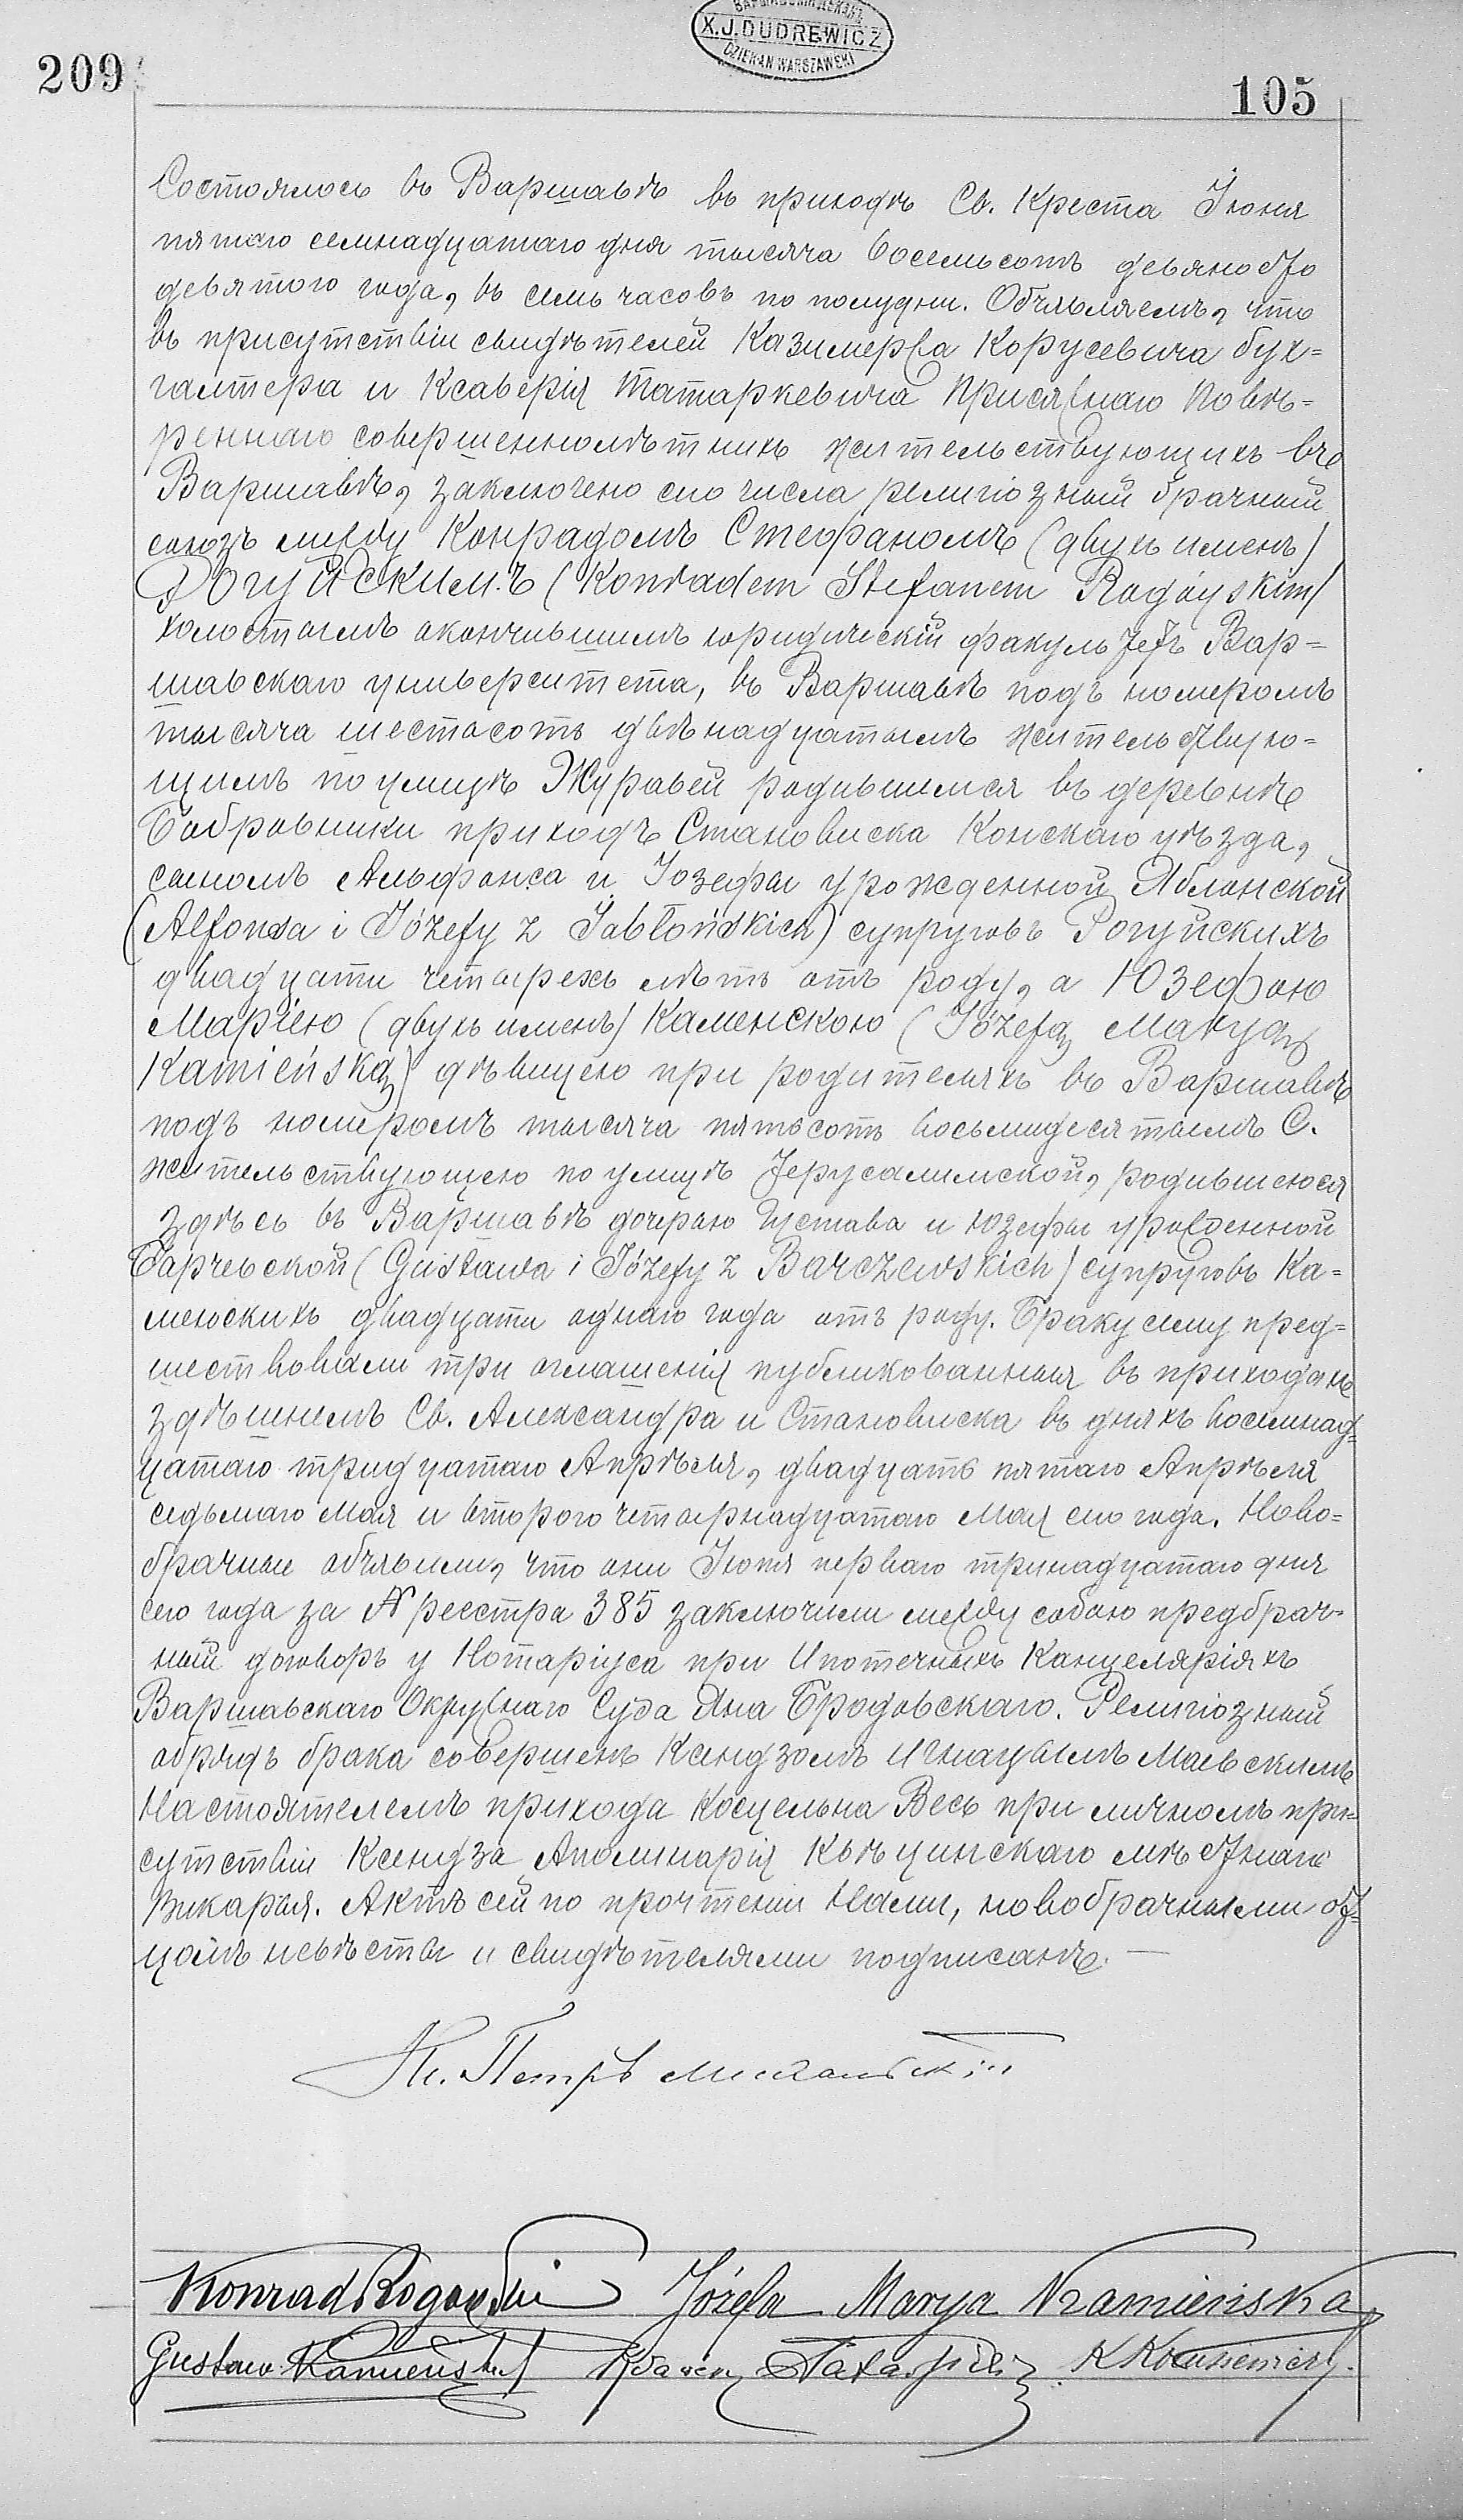 209
X.J. DUDREWICZ
DZIEKAN WARSZAWSKI
105
Состоялось въ Варшавѣ въ приходѣ Св. Креста Іюня
пятаго семнадцатаго дня тысяча восемьсотъ девяносто
девятого года, въ семь часовъ по полудни. Объявляемъ, что
въ присутствіи свидѣтелей Казимержа Корусевича бух=
галтера и Ксаверія Татаркевича Присяжнаго Повѣ=
реннаго совершеннолѣтнихъ жительствующихъ въ
Варшавѣ, заключено сего числа религіозный брачный
союзъ между Конрадомъ Стефаномъ (двухъ именъ)
Рогуйскимъ (Konradem Stefanem Rogóyskim)
холостымъ окончившимъ юридическій факультетъ Вар=
шавскаго университета, въ Варшавѣ подъ номеромъ
тысяча шестьсотъ двѣнадцатымъ жительствую=
щимъ по улицѣ Журавей родившимся въ деревнѣ
Бобровники приходъ Становиска Конскаго уѣзда,
сыномъ Альфонса и Іозефы урожденной Яблонской
(Alfonsa i Józefy z Jabłońskich) супруговъ Рогуйскихъ
двадцати четырехъ лѣтъ отъ роду, а Юзефою
Маріею (двухъ именъ) Каменскою (Józefą Maryą
Kamieńską) дѣвицею при родителяхъ въ Варшавѣ
подъ номеромъ тысяча пятьсотъ восьмидесятымъ С.
жительствующею по улицѣ Іерусалимской, родившеюся
здѣсь въ Варшавѣ дочерью Густава и Юзефы урожденной
Барчевской (Gustawa i Józefy z Barczewskich) супруговъ Ка=
менскихъ двадцати однаго года отъ роду. Браку сему пред=
шествовали три оглашенія публикованныя въ приходахъ
здѣшнемъ Св. Александра и Становиска въ дняхъ восемнад=
цатаго тридцатаго Апрѣля, двадцать пятаго Апрѣля
седьмаго Мая и втораго четырнадцатаго Мая сего года. Ново=
брачные объявили, что они Іюня перваго тринадцатаго дня
сего года за № реестра 385 заключили между собою предбрач=
ный договоръ у Нотаріуса при Ипотечныхъ Канцеляріяхъ
Варшавскаго Окружнаго Суда Яна Бродовскаго. Религіозный
обрядъ брака совершенъ Ксендзомъ Игнацымъ Маевскимъ
Настоятелемъ прихода Косцельна Весь при личномъ при=
сутствіи Ксендза Аполинарія Квѣцинскаго мѣстнаго
Викарія. Актъ сей по прочтеніи Нами, новобрачными от=
цомъ невѣсты и свидѣтелями подписанъ. —
Кс. Петръ
Konrad Rogoyski Józefa Marya Kamieńska
Gustaw Kamieński